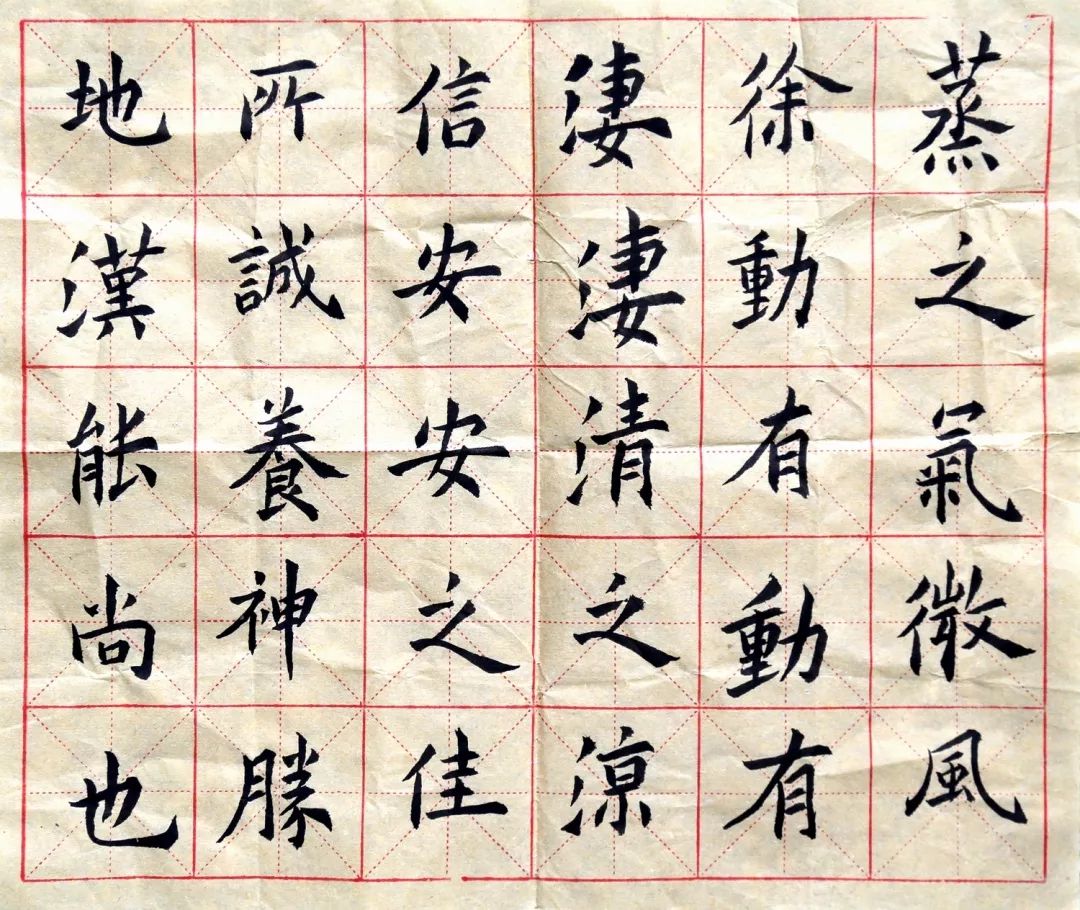 蒸之氣微風
徐動有動有
淒淒清之涼
信安安之佳
所誠養神勝
地漢能尚也